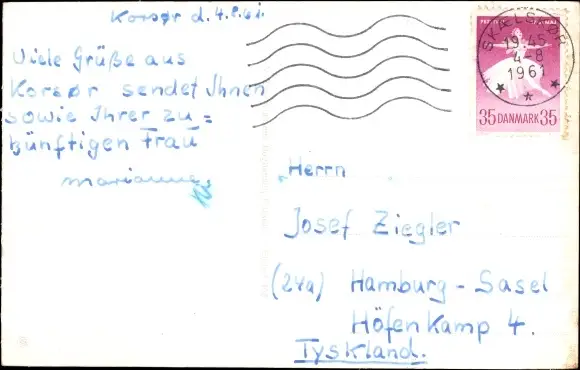 Korsør d. 4.8.61.
Viele Grüße aus
Korsør sendet Ihnen
sowie Ihrer zu=
künftigen Frau
Marianne.
SKÆLSKØR
19.45
4-8
1961
35 DANMARK 35
Herrn
Josef Ziegler
(24a) Hamburg - Sasel
Höfenkamp 4.
Tyskland.